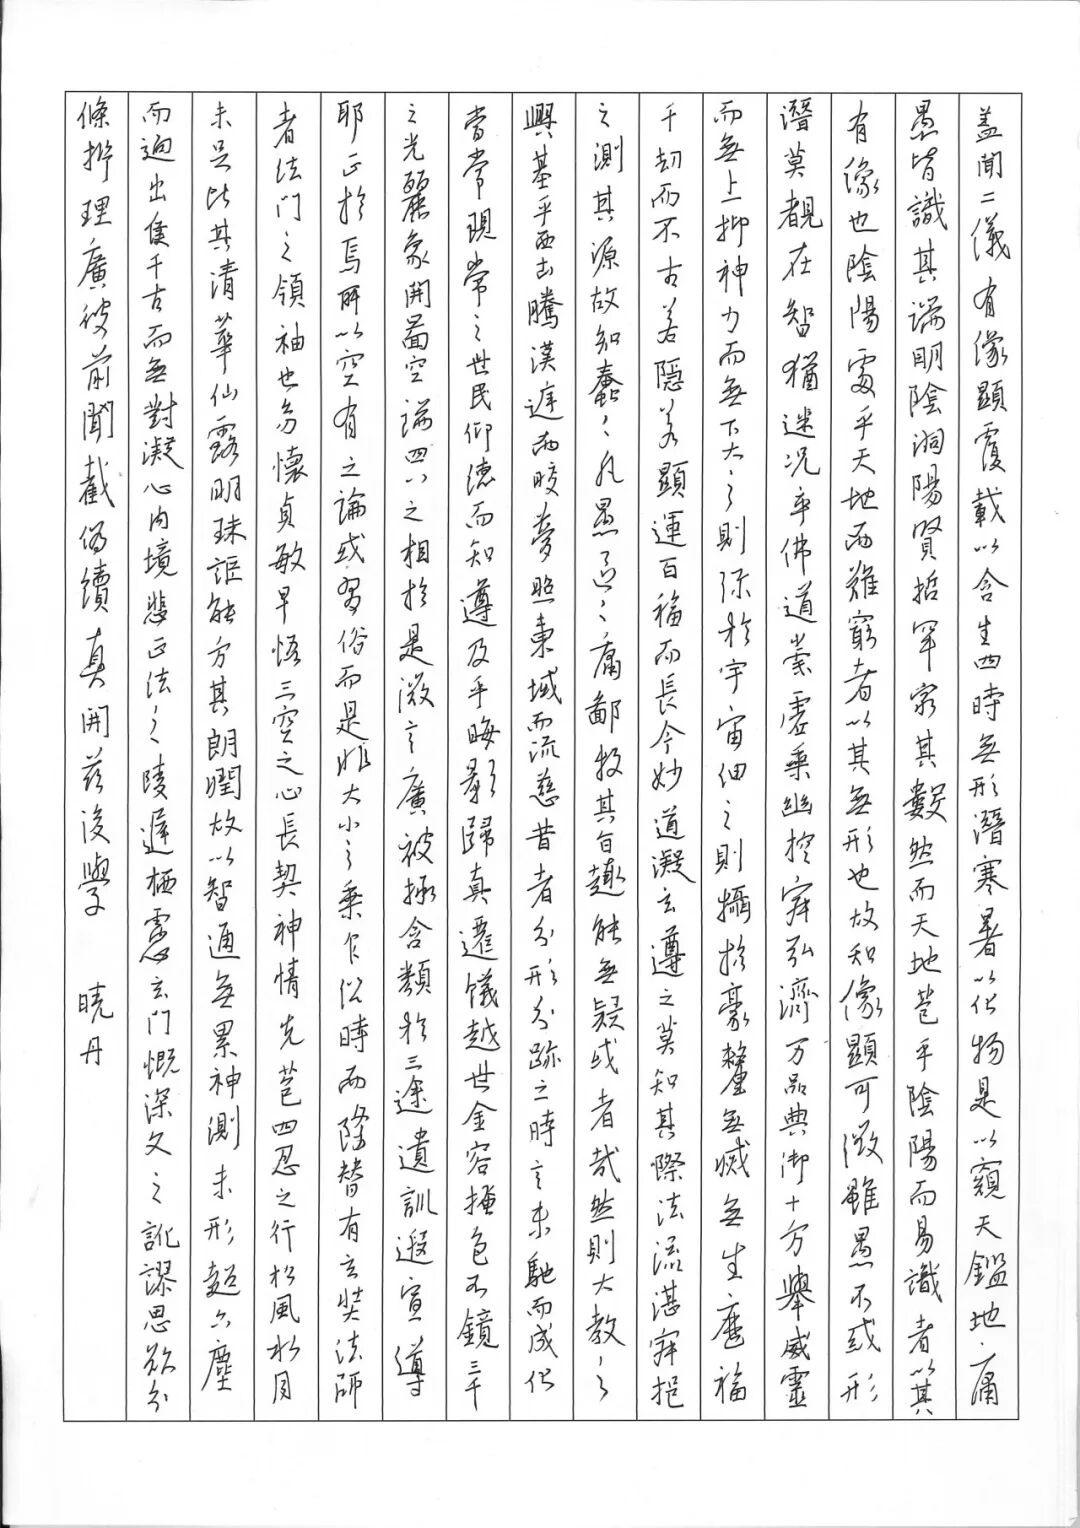 蓋聞二儀有像顯覆載以含生四時無形潛寒暑以化物是以窺天鑑地庸
愚皆識其端明陰洞陽賢哲罕窮其數然而天地苞乎陰陽而易識者以其
有像也陰陽處乎天地而難窮者以其無形也故知像顯可徵雖愚不惑形
潛莫覩在智猶迷況乎佛道崇虛乘幽控寂弘濟万品典御十方舉威靈
而無上抑神力而無下大之則弥於宇宙細之則攝於豪釐無滅無生歷福
千劫而不古若隱若顯運百福而長今妙道凝玄遵之莫知其際法流湛寂挹
之測其源故知蠢〻凡愚區〻庸鄙投其旨趣能無疑或者哉然則大教之
興基乎西土騰漢庭而皎夢照東域而流慈昔者分形分跡之時言未馳而成化
當常現常之世民仰德而知遵及乎晦影歸真遷儀越世金容掩色不鏡三千
之光麗象開圖空端四八之相於是微言廣被拯含類於三途遺訓遐宣導
耶正於焉所以空有之論或習俗而是非大小之乘乍沿時而隆替有玄奘法師
者法門之領袖也幼懷貞敏早悟三空之心長契神情先苞四忍之行松風水月
未足比其清華仙露明珠詎能方其朗潤故以智通無累神測未形超六塵
而迥出隻千古而無對凝心內境悲正法之陵遲栖慮玄門慨深文之訛謬思欲分
條析理廣彼前聞截偽續真開茲後學 曉丹